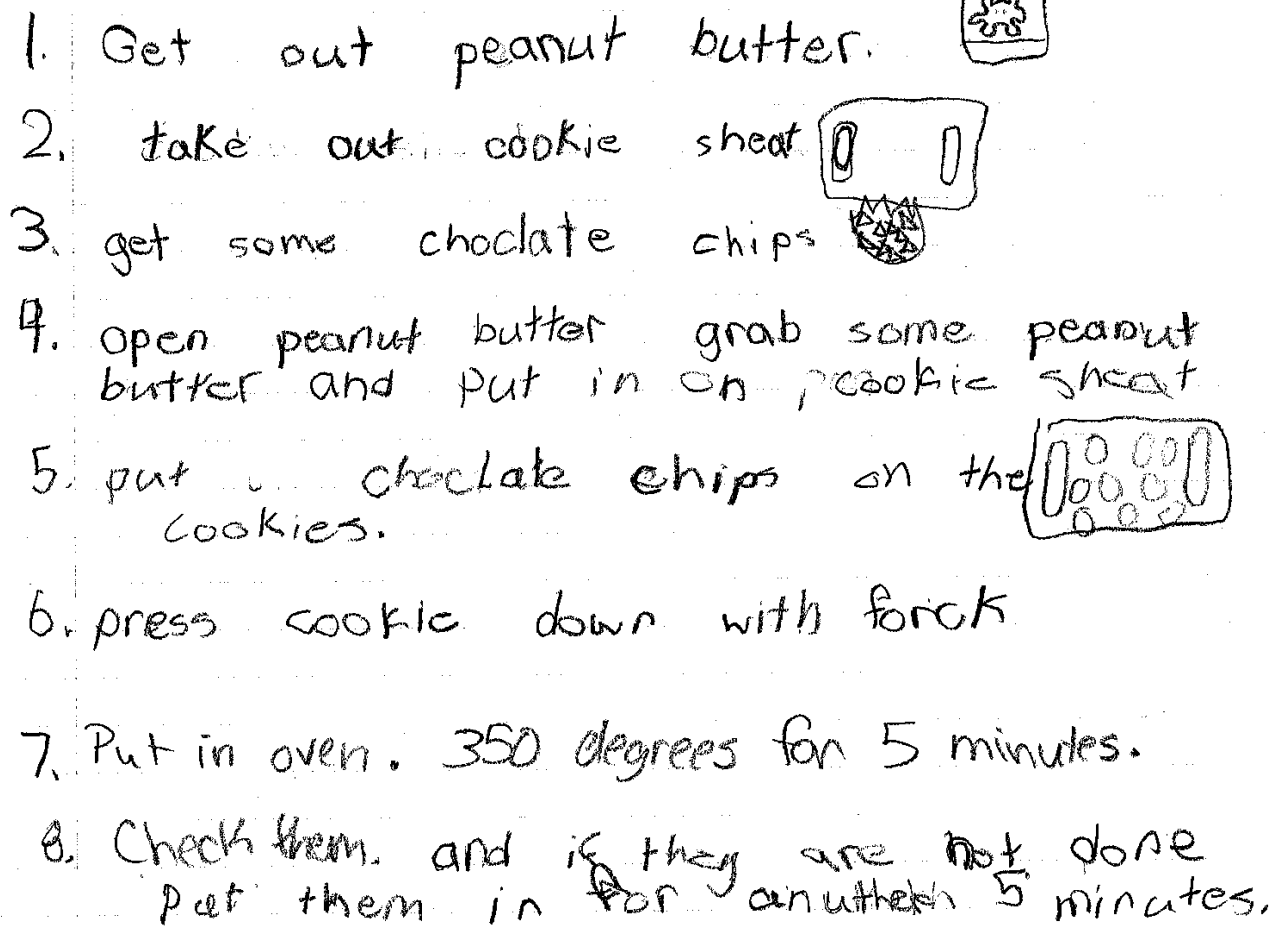 1. Get out peanut butter.
2. take out cookie sheat
3. get some choclate chips
4. open peanut butter grab some peanut
butter and put in on cookie sheat
5. put choclate chips on the
cookies.
6. press cookie down with forck
7. Put in oven. 350 degrees for 5 minutes.
8. Check them. and if they are not done
Put them in for anutheh 5 minutes.